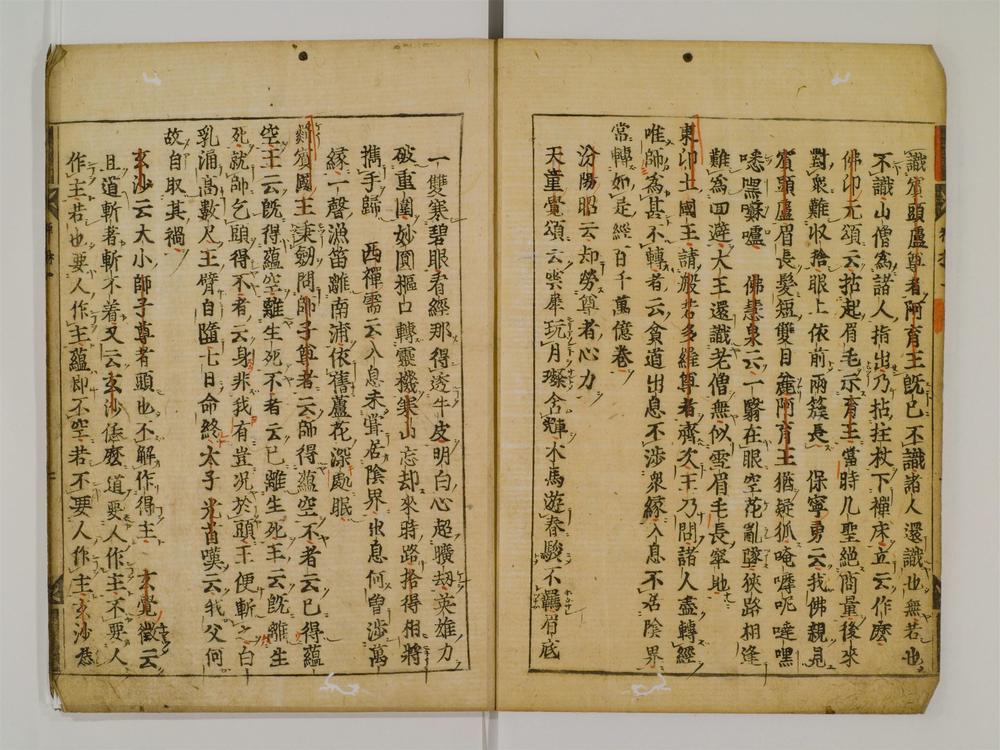 識賓頭盧尊者阿育王既已不識諸人還識也無若也
不識山僧為諸人指出乃拈拄杖下禪床立云作麼
佛印元頌云拈起眉毛示育王當時凡聖絕商量後來
對衆難収捨眼上依前兩簇長　保寧勇云我佛親見
賓頭盧眉長髮短雙目麁阿育王猶疑狐唵嚤呢噠㗭
㗭嚧　佛慧泉云一翳在眼空花亂墜狹路相逢
難為回避大王還識老僧無似雪眉毛長窣地
東印土國王請般若多羅尊者齋次王乃問諸人盡轉經
唯師為甚不轉者云貧道出息不涉衆緣入息不居陰界
常轉如是經百千萬億卷
汾陽昭云却勞尊者心力
天童覺頌云雲犀玩月璨含輝木馬遊春駿不羈眉底
一雙寒碧眼看經那得透牛皮明白心起曠劫英雄力
破重圍妙圓樞口轉靈機寒山忘却來時路拾得相將
攜手歸　西禪需云入息未甞居陰界出息何曽涉萬
緣一聲漁笛離南浦依舊蘆花深處眠
罽賓國王秉劒問師子尊者云師得蘊空不者云已得蘊
空王云既得蘊空離生死不者云已離生死王云既離生
死就師乞頭得不者云身非我有豈況於頭王便斬之白
乳涌高數尺王臂自墮七日命終太子光首嘆云我父何
故自取其禍
玄沙云大小師子尊者頭也不解作得主　玄覺徵云
且道斬者斬不着又云玄沙恁麼道要人作主不要人
作主若也要人作主蘊即不空若不要人作主玄沙恁